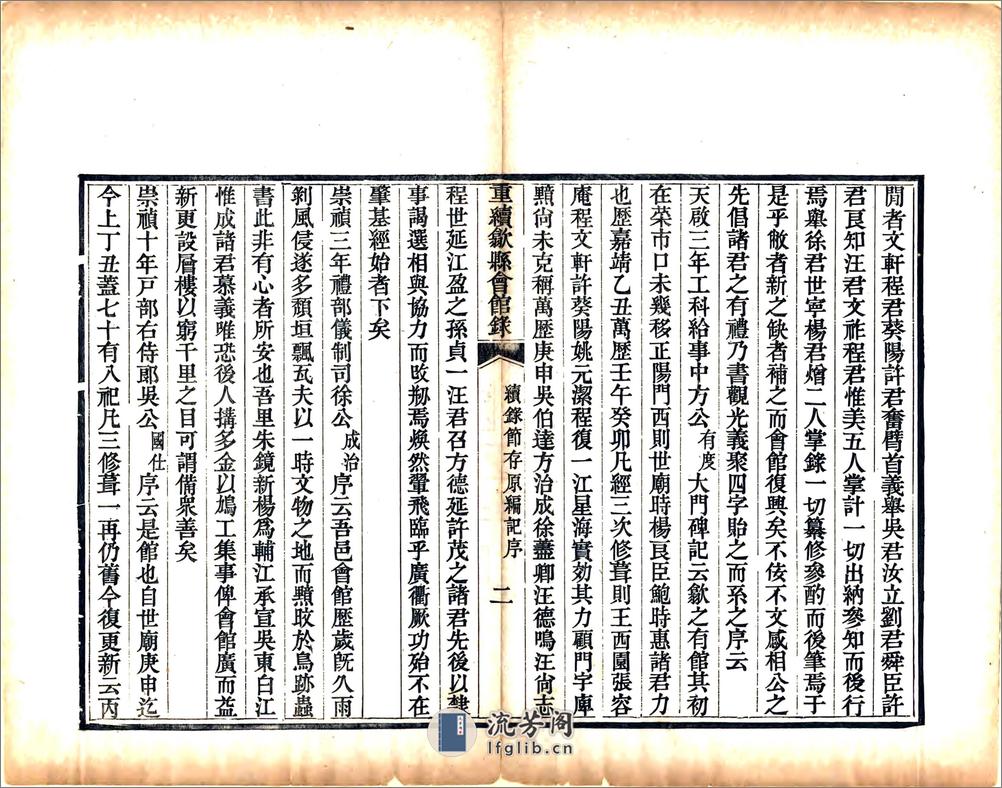 閒者文軒程君葵陽許君奮臂首義舉吳君汝立劉君舜臣許
君良知汪君文祚程君惟美五人掌計一切出納參知而後行
焉舉徐君世寧楊君熷二人掌錄一切纂修參酌而後筆焉于
是乎敝者新之缺者補之而會館復興矣不佞不文感相公之
先倡諸君之有禮乃書觀光義聚四字貽之而系之序云
天啟三年工科給事中方公有度大門碑記云歙之有館其初
在菜市口未幾移正陽門西則世廟時楊良臣鮑時惠諸君力
也歷嘉靖乙丑萬歷壬午癸卯凡經三次修葺則王西園張容
庵程文軒許葵陽姚元潔程復一江星海實効其力顧門宇庫
黯尚未克稱萬歷庚申吳伯達方治成徐藎卿汪德鳴汪尚志
重續歙縣會館錄 續錄節存原編記序 二
程世延江盈之孫貞一汪君召方德延許茂之諸君先後以隸
事謁選相與協力而改剏焉煥然翬飛臨乎廣衢厥功殆不在
肇基經始者下矣
崇禎三年禮部儀制司徐公成治序云吾邑會館歷歲既久雨
剝風侵遂多頹垣飄瓦夫以一時文物之地而黯敃於鳥跡蟲
書此非有心者所安也吾里朱鏡新楊為輔江承宣吳東白江
惟成諸君慕義唯恐後人搆多金以鳩工集事俾會館廣而益
新更設層樓以窮千里之目可謂備眾善矣
崇禎十年戶部右侍郎吳公國仕序云是館也自世廟庚申迄
今上丁丑蓋七十有八祀凡三修葺一再仍舊今復更新云丙
流芳阁
lfglib.cn